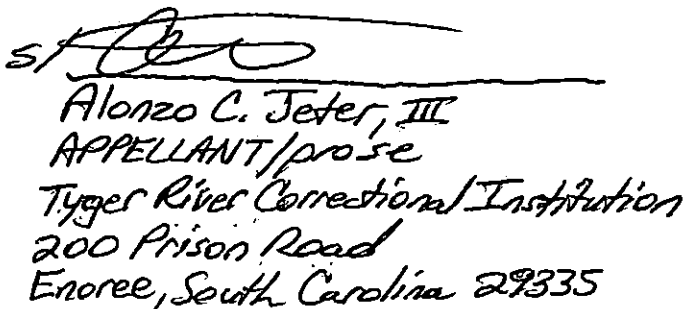 s/
Alonzo C. Jeter, III
APPELLANT/prose
Tyger River Correctional Institution
200 Prison Road
Enoree, South Carolina 29335